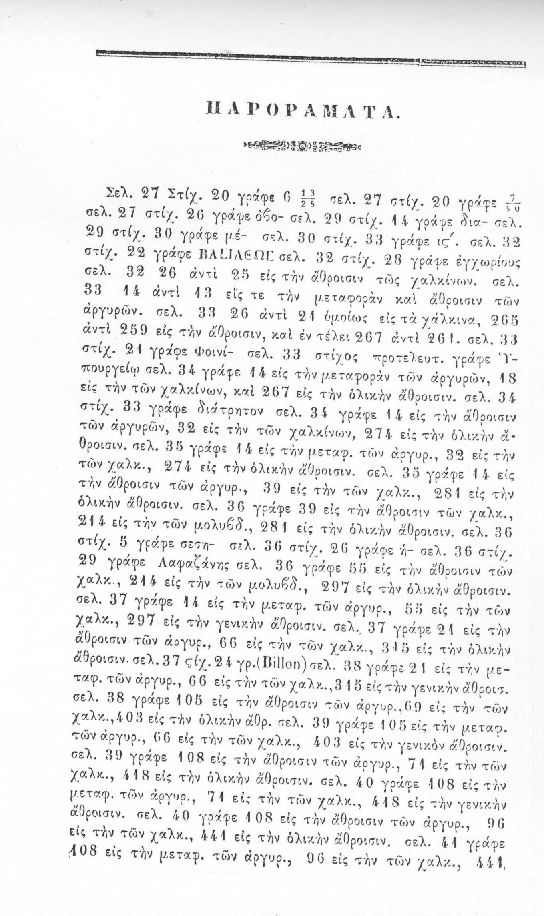 ΠΑΡΟΡΑΜΑΤΑ.
Σελ. 27 Στίχ. 20 γράφε 6 13/25 σελ. 27 στίχ. 20 γράφε 7/50
σελ. 27 στίχ. 26 γράφε ὀβο- σελ. 29 στίχ. 14 γράφε δια- σελ.
29 στίχ. 30 γράφε μέ- σελ. 30 στίχ. 33 γράφε ις΄. σελ. 32
στίχ. 22 γράφε ΒΑΣΙΛΕΩΣ σελ. 32 στίχ. 28 γράφε ἐγχωρίους
σελ. 32 26 ἀντὶ 25 εἰς τὴν ἄθροισιν τῶς χαλκίνων. σελ.
33 14 ἀντὶ 13 εἰς τε τὴν μεταφορὰν καὶ ἄθροισιν τῶν
ἀργυρῶν. σελ. 33 26 ἀντὶ 21 ὁμοίως εἰς τὰ χάλκινα, 265
ἀντὶ 259 εἰς τὴν ἄθροισιν, καὶ ἐν τέλει 267 ἀντὶ 261. σελ. 33
στίχ. 21 γράφε Φοινί- σελ. 33 στίχος προτελευτ. γράφε Ὑ-
πουργείῳ σελ. 34 γράφε 14 εἰς τὴν μεταφορὰν τῶν ἀργυρῶν, 18
εἰς τὴν τῶν χαλκίνων, καὶ 267 εἰς τὴν ὁλικὴν ἄθροισιν. σελ. 34
στίχ. 33 γράφε διάτρητον σελ. 34 γράφε 14 εἰς τὴν ἄθροισιν
τῶν ἀργυρῶν, 32 εἰς τὴν τῶν χαλκίνων, 274 εἰς τὴν ὁλικὴν ἄ-
θροισιν. σελ. 35 γράφε 14 εἰς τὴν μεταφ. τῶν ἀργυρ., 32 εἰς τὴν
τῶν χαλκ., 274 εἰς τὴν ὁλικὴν ἄθροισιν. σελ. 35 γράφε 14 εἰς
τὴν ἄθροισιν τῶν ἀργυρ., 39 εἰς τὴν τῶν χαλκ., 281 εἰς τὴν
ὁλικὴν ἄθροισιν. σελ. 36 γράφε 39 εἰς τὴν ἄθροισιν τῶν χαλκ.,
214 εἰς τὴν τῶν μολυβδ., 281 εἰς τὴν ὁλικὴν ἄθροισιν. σελ. 36
στίχ. 5 γράφε σεση- σελ. 36 στίχ. 26 γράφε ἡ- σελ. 36 στίχ.
29 γράφε Λαφαζάνης σελ. 36 γράφε 55 εἰς τὴν ἄθροισιν τῶν
χαλκ., 214 εἰς τὴν τῶν μολυβδ., 297 εἰς τὴν ὁλικὴν ἄθροισιν.
σελ. 37 γράφε 14 εἰς τὴν μεταφ. τῶν ἀργυρ., 55 εἰς τὴν τῶν
χαλκ., 297 εἰς τὴν γενικὴν ἄθροισιν. σελ. 37 γράφε 21 εἰς τὴν
ἄθροισιν τῶν ἀργυρ., 66 εἰς τὴν τῶν χαλκ., 315 εἰς τὴν ὁλικὴν
ἄθροισιν. σελ. 37 ςίχ. 24 γρ. (Billon) σελ. 38 γράφε 21 εἰς τὴν με-
ταφ. τῶν ἀργυρ., 66 εἰς τὴν τῶν χαλκ., 315 εἰς τὴν γενικὴν ἄθροισ.
σελ. 38 γράφε 105 εἰς τὴν ἄθροισιν τῶν ἀργυρ., 69 εἰς τὴν τῶν
χαλκ., 403 εἰς τὴν ὁλικὴν ἄθρ. σελ. 39 γράφε 105 εἰς τὴν μεταφ.
τῶν ἀργυρ., 66 εἰς τὴν τῶν χαλκ., 403 εἰς τὴν γενικὸν ἄθροισιν.
σελ. 39 γράφε 108 εἰς τὴν ἄθροισιν τῶν ἀργυρ., 71 εἰς τὴν τῶν
χαλκ., 418 εἰς τὴν ὁλικὴν ἄθροισιν. σελ. 40 γράφε 108 εἰς τὴν
μεταφ. τῶν ἀργυρ., 71 εἰς τὴν τῶν χαλκ., 418 εἰς τὴν γενικὴν
ἄθροισιν. σελ. 40 γράφε 108 εἰς τὴν ἄθροισιν τῶν ἀργυρ., 96
εἰς τὴν τῶν χαλκ., 441 εἰς τὴν ὁλικὴν ἄθροισιν. σελ. 41 γράφε
108 εἰς τὴν μεταφ. τῶν ἀργυρ., 96 εἰς τὴν τῶν χαλκ., 441,